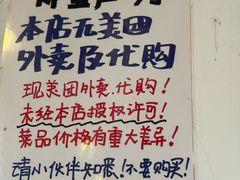 本店无美团
外卖及代购
现美团外卖.代购!
未经本店授权许可!
菜品价格有重大差异!
请小伙伴知悉!不要购买!